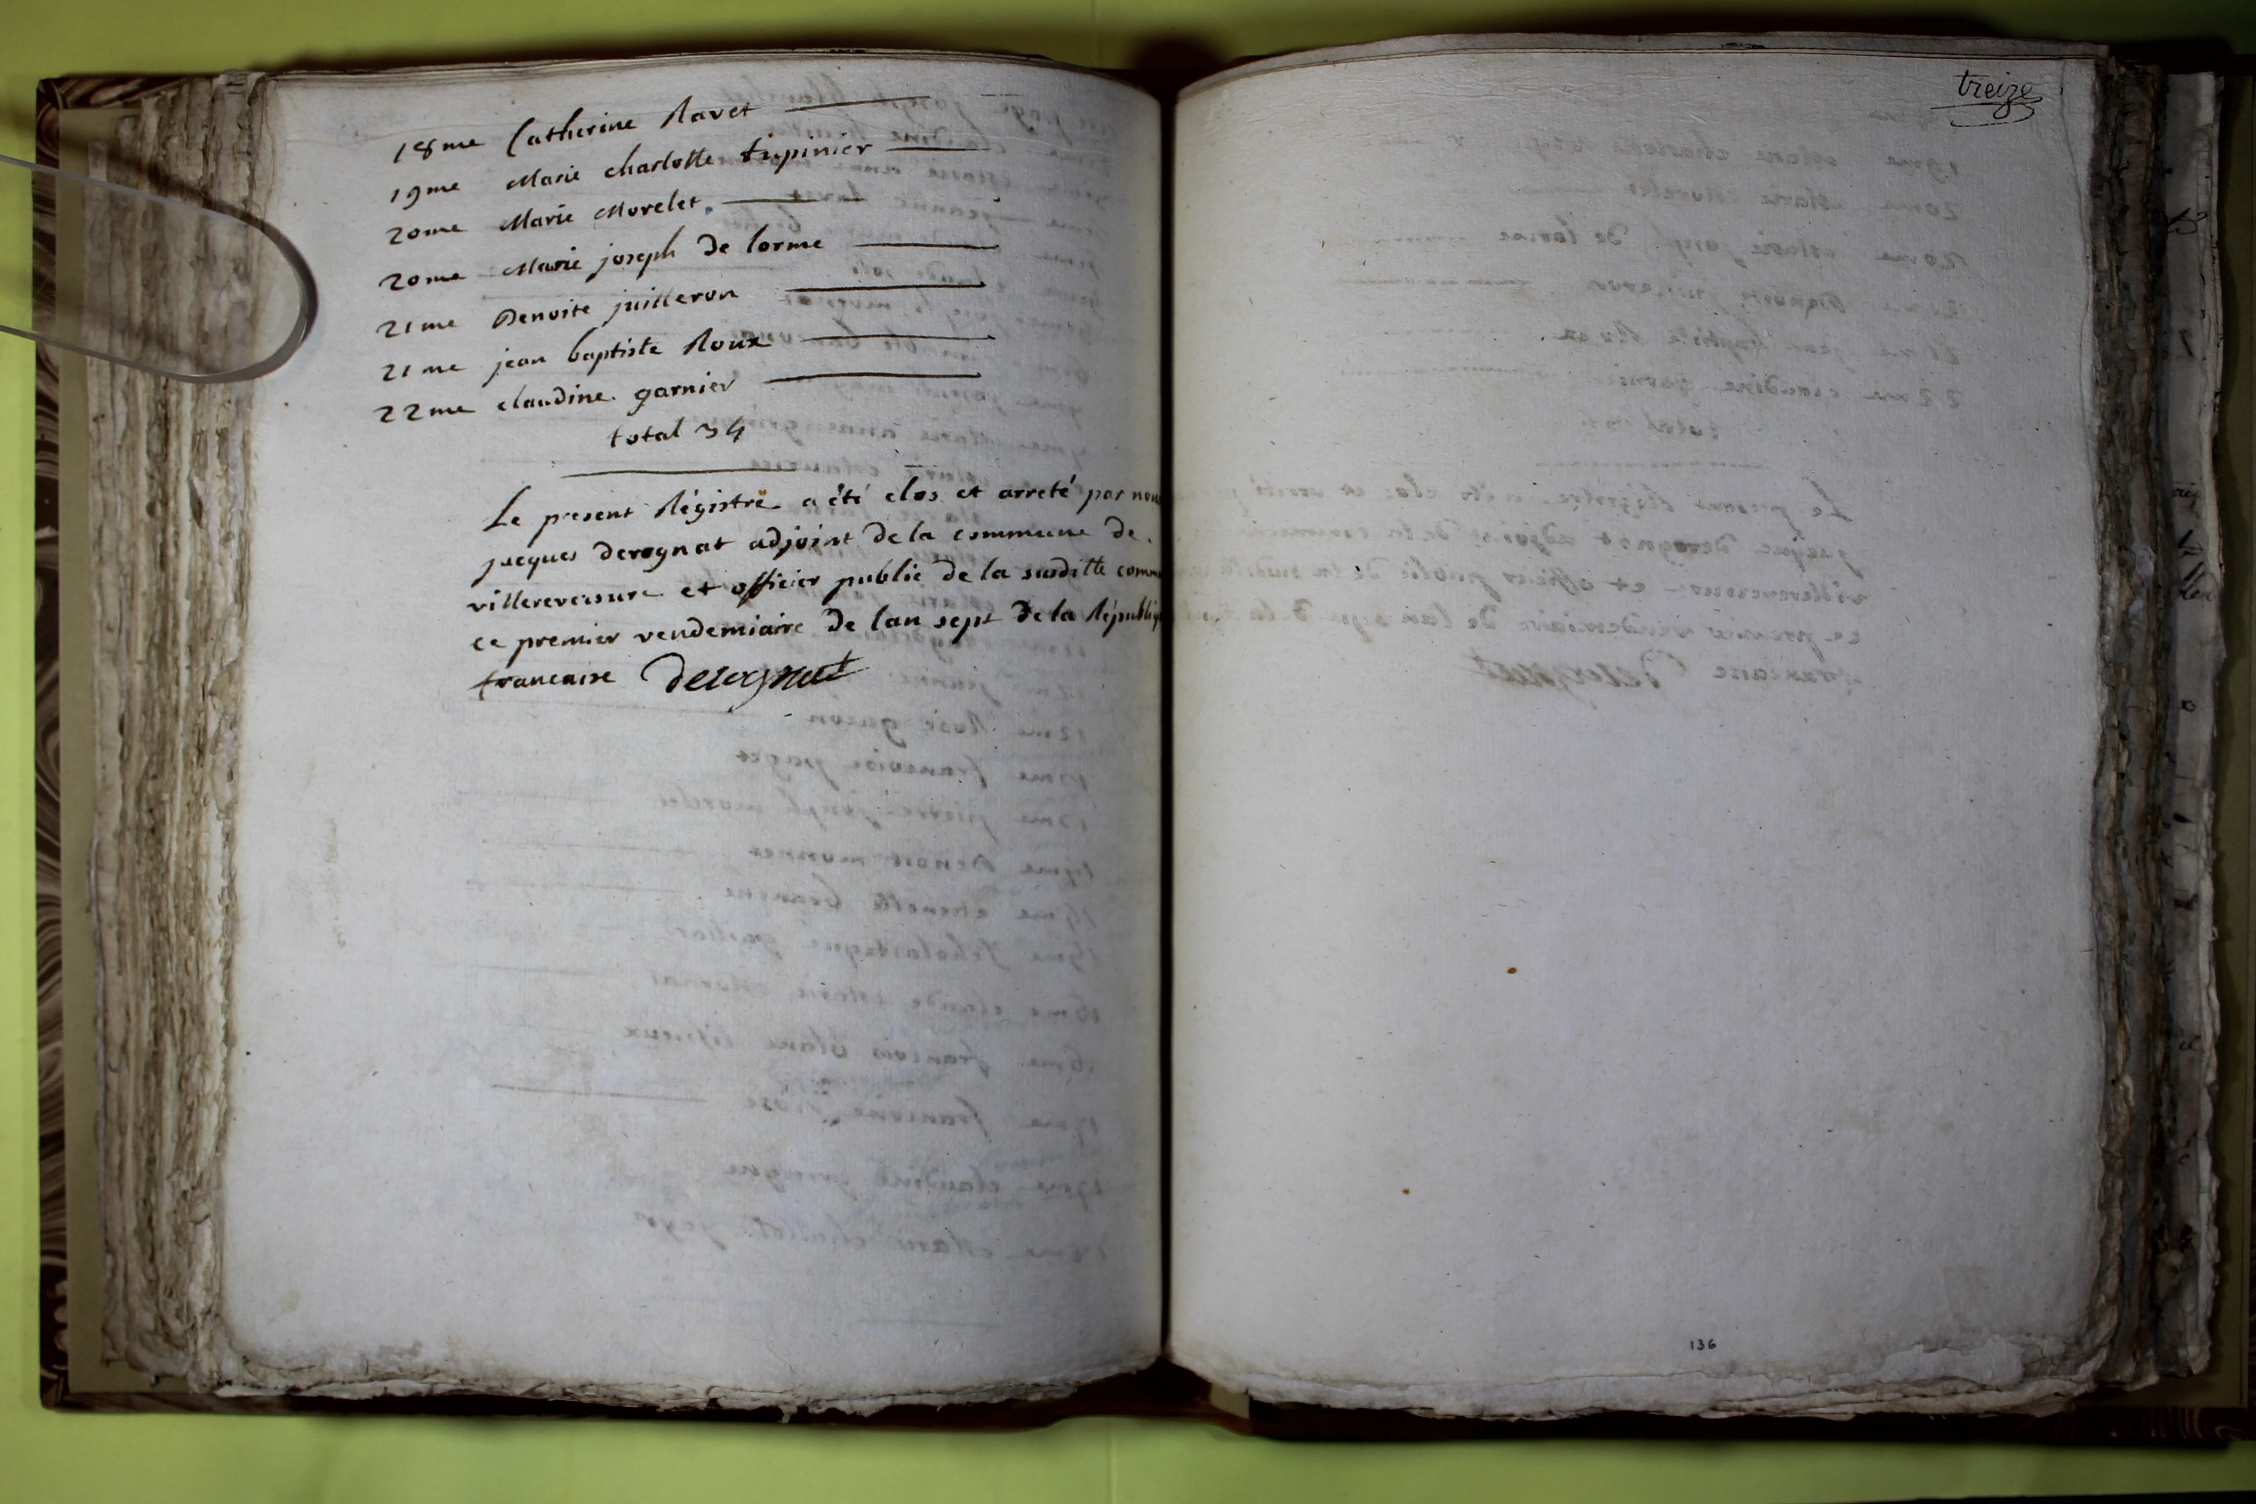 18me Catherine Ravet
19me Marie charlotte tupinier
20me Marie Morelet.
20me Marie joseph De lorme
21me Benoite juilleron
21me jean baptiste Roux
22me claudine garnier
total 34
Le present Régistre a été clos et arreté par nous
jacques derognat adjoint De la commune De.
villereversure et officier public De la susditte comm
ce premier vendemiaire De lan sept De la Républiq
francaise Derognat
treize
136